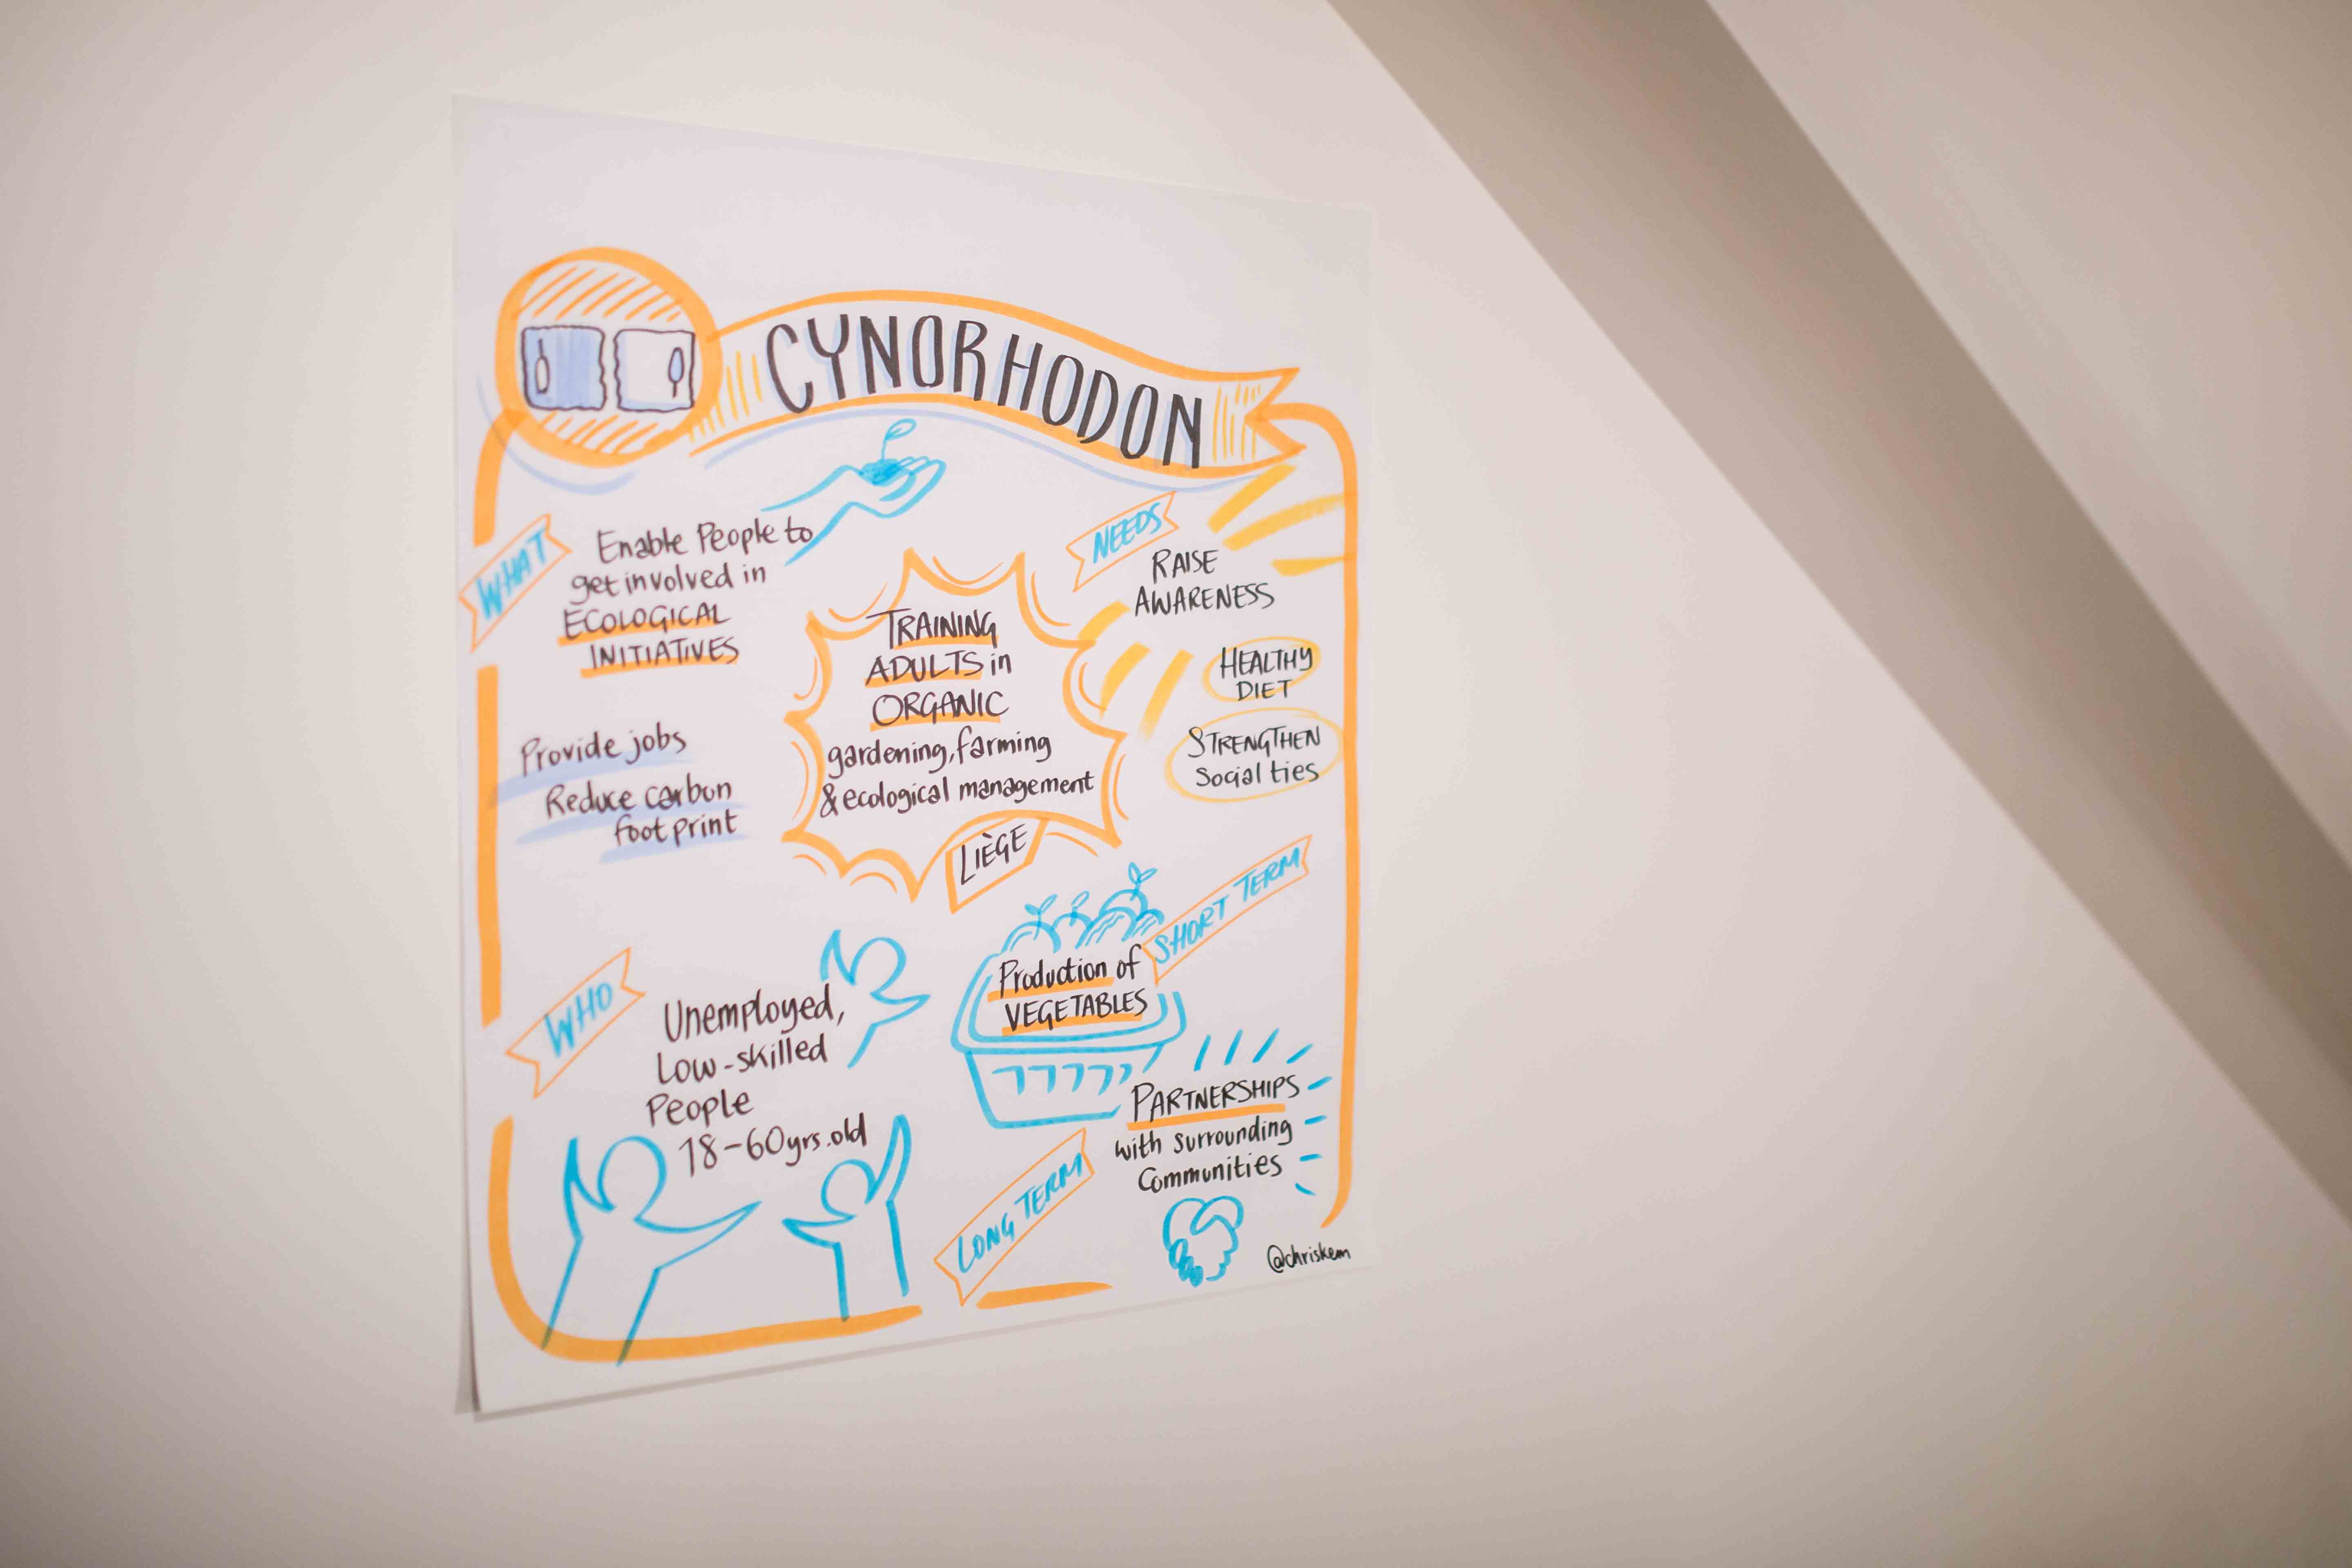 CYNORHODON
WHAT
Enable People to
get involved in
ECOLOGICAL
INITIATIVES
Provide jobs
Reduce carbon
foot print
TRAINING
ADULTS in
ORGANIC
gardening, farming
& ecological management
LIÈGE
NEEDS
RAISE
AWARENESS
HEALTHY
DIET
STRENGTHEN
Social ties
WHO
Unemployed,
Low-skilled
People
18-60yrs.old
SHORT TERM
Production of
VEGETABLES
LONG TERM
PARTNERSHIPS
with surrounding
Communities
@chriskem